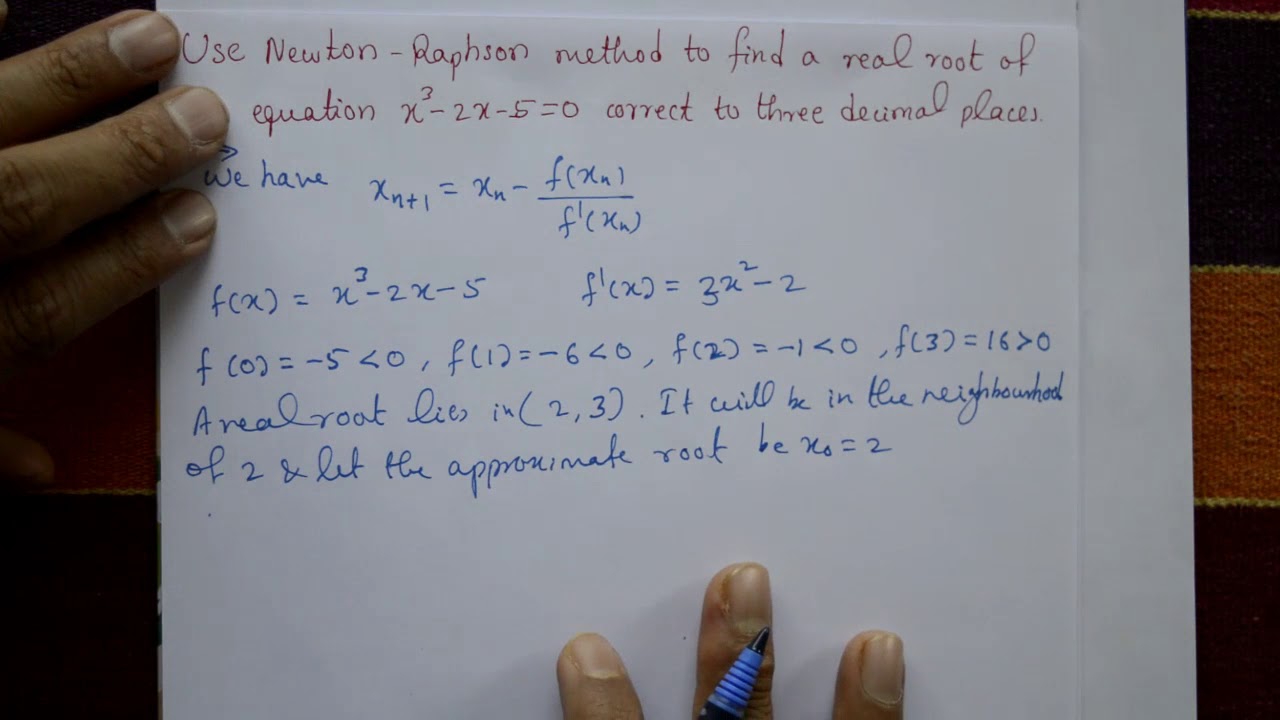 Use Newton-Raphson method to find a real root of
equation x³-2x-5=0 correct to three decimal places.
⇒
We have xₙ₊₁ = xₙ - f(xₙ)/f'(xₙ)
f(x) = x³-2x-5 f'(x) = 3x²-2
f(0)=-5<0, f(1)=-6<0, f(2)=-1<0, f(3)=16>0
A real root lies in (2,3). It will be in the neighbourhood
of 2 & let the approximate root be x₀=2